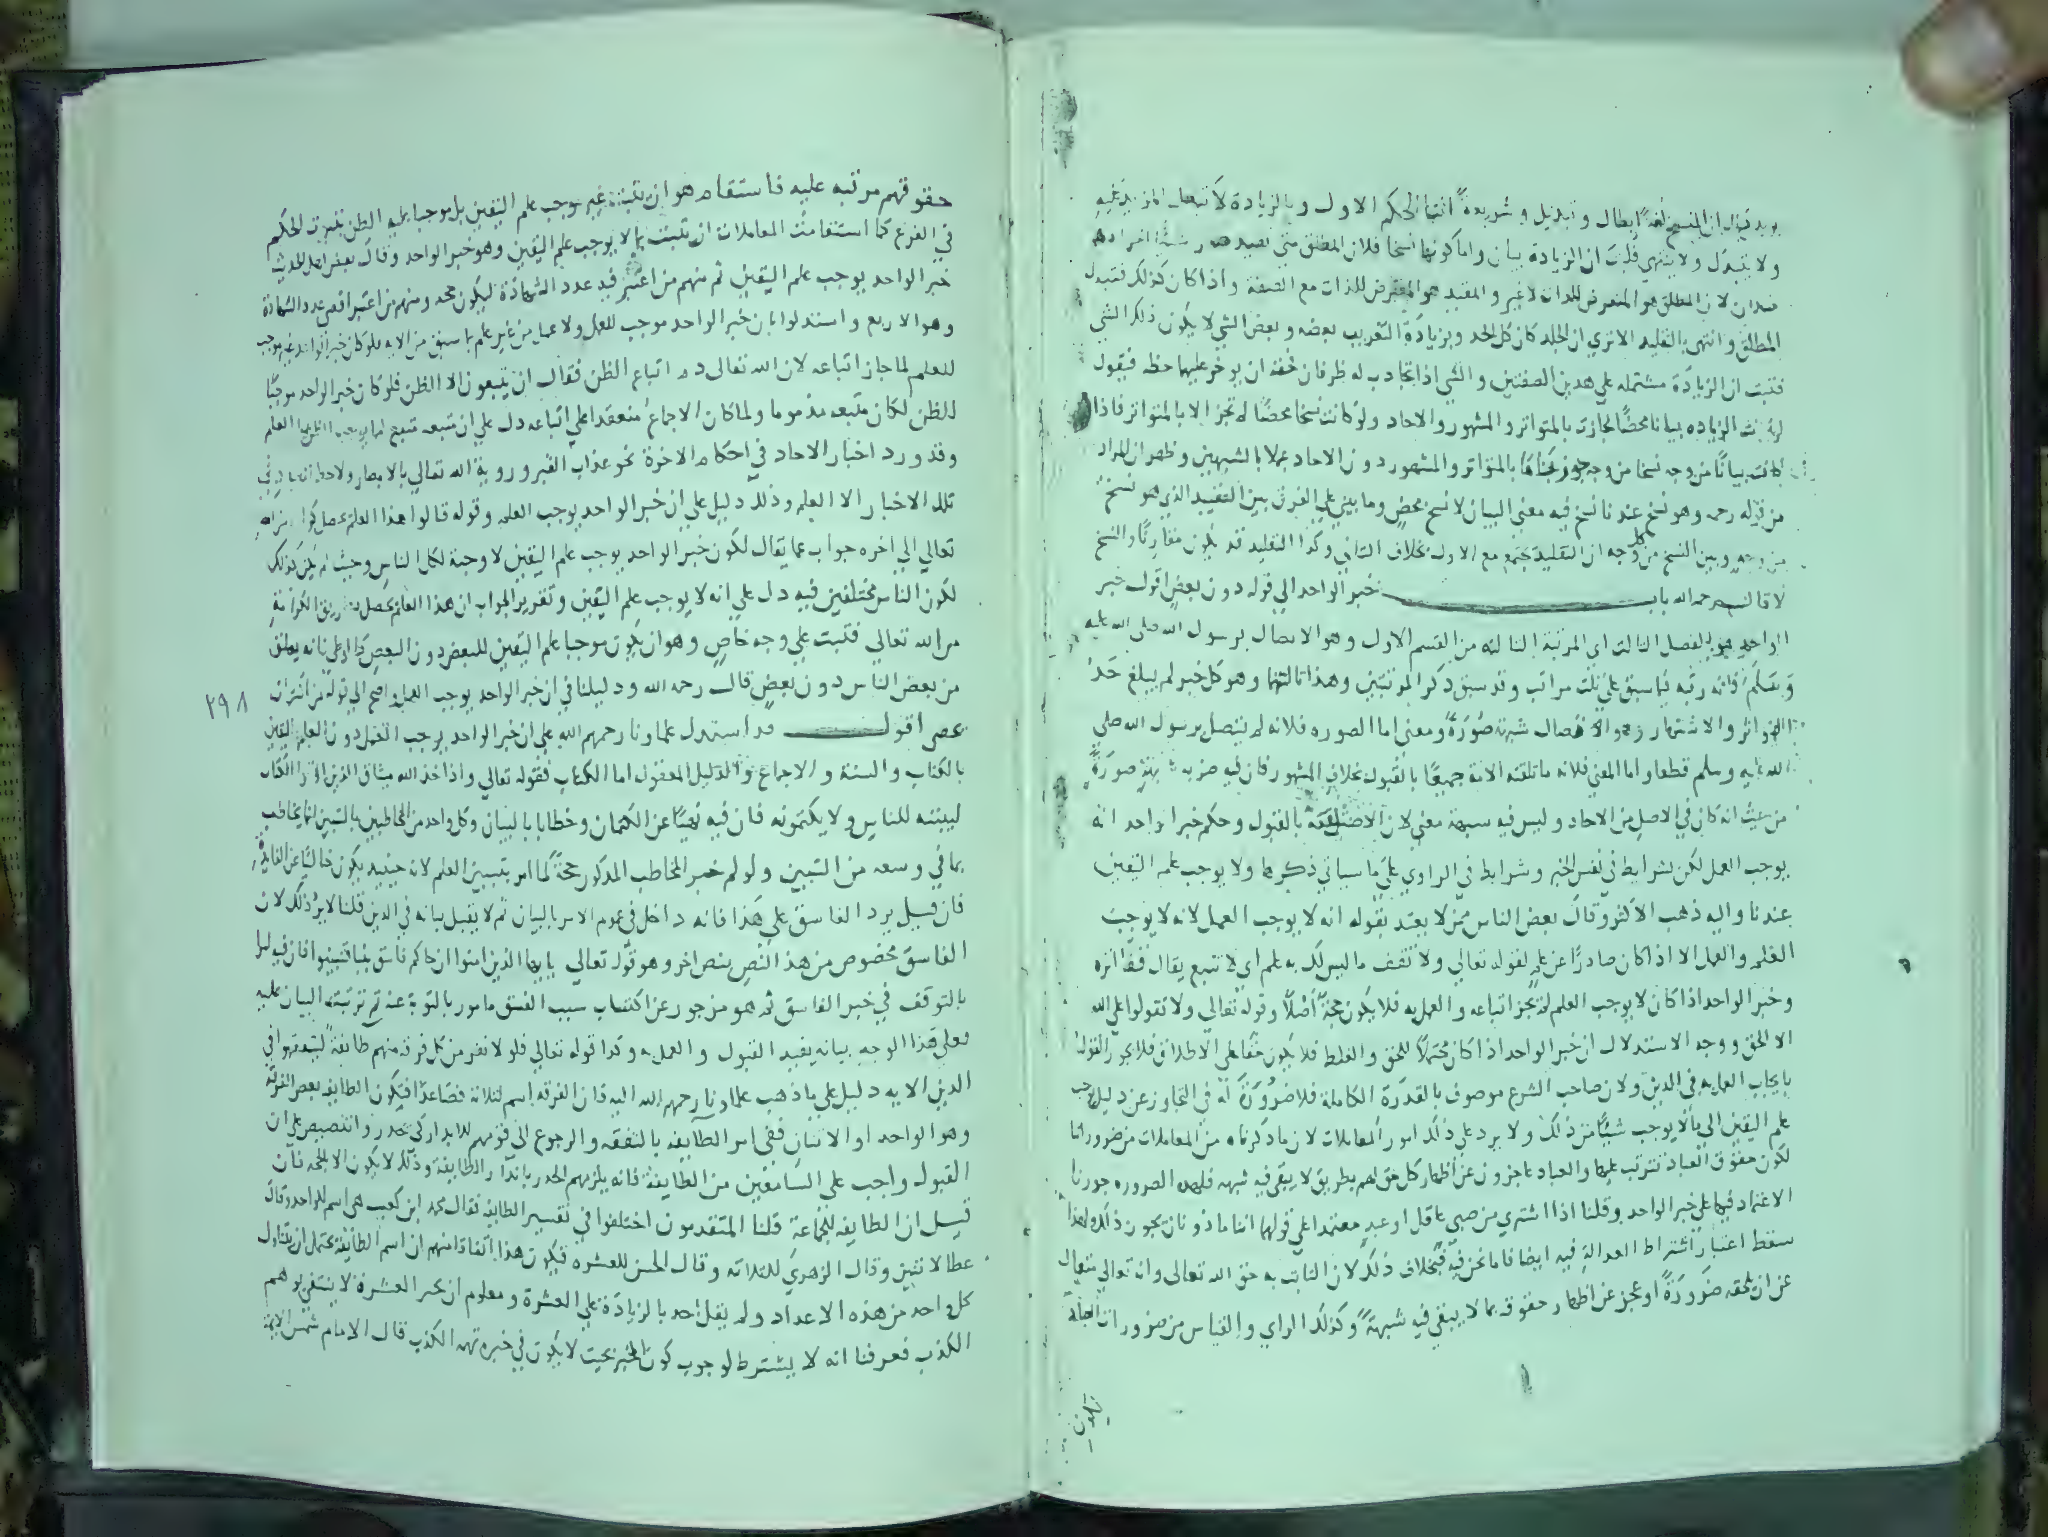 ان النسخ لغة ابطال وتبديل وشريعة انتهاء الحكم الاول وبالزيادة لا
ولا يتبدل ولا ينتهي قلت ان الزيادة بيان واما كونها نسخا فلان المطلق متى
ضدان لان المطلق هو المتعرض للذات لا غير والمقيد هو المتعرض للذات مع الصفة واذا كان كذلك فتبدل
المطلق وانتهى بالتقييد الا ترى ان الجلد كان كل الحد وبزيادة التغريب بعضه وبعض الشي لا يكون ذلك الشي
فثبت ان الزيادة مشتملة على هذين الصفتين والشي اذا تجاذب له طرفان فحقه ان يوفر عليهما حظه فيقول
لو كانت الزيادة بيانا محضا لجازت بالمتواتر والمشهور والاحاد ولو كانت نسخا محضا لم تجز الا بالمتواتر فاذا
كانت بيانا من وجه نسخا من وجه جوزناها بالمتواتر والمشهور دون الاحاد عملا بالشبهين وظهر ان المراد
من قوله رحمه وهو نسخ عندنا نسخ فيه معنى البيان لا نسخ محض وما بيني على الفرق بين التقييد الذي هو نسخ
من وجه وبين النسخ من كل وجه ان التقييد يجتمع مع الاول بخلاف الثاني وكذا التقييد قد يكون مقارنا والنسخ
لا قال رحمه الله باب خبر الواحد الى قوله دون بعض اقول خبر
الواحد هو الفصل الثالث اي المرتبة الثالثة من القسم الاول وهو الاتصال برسول الله صلى الله عليه
وسلم فانه رتبه فيما سبق على ثلث مراتب وقد سبق ذكر المرتبتين وهذا ثالثتها وهو كل خبر لم يبلغ حد
التواتر والاشتهار وهو اتصال شبهة صورة ومعنى اما الصورة فلانه لم يتصل برسول الله صلى
الله عليه وسلم قطعا واما المعنى فلانه ما تلقته الامة جميعا بالقبول بخلاف المشهور فان فيه ضرب شبهة صورة
من حيث انه كان في الاصل من الاحاد وليس فيه شبهة معنى لان الامة تلقته بالقبول وحكم خبر الواحد انه
يوجب العمل لكن بشرايط في نفس الخبر وشرايط في الراوي على ما سياتي ذكرها ولا يوجب علم اليقين
عندنا واليه ذهب الاكثر وقال بعض الناس ممن لا يعتد بقوله انه لا يوجب العمل لانه لا يوجب
العلم والعمل الا اذا كان صادرا عن علم لقوله تعالى ولا تقف ما ليس لك به علم اي لا تتبع يقال قفا اثره
وخبر الواحد اذا كان لا يوجب العلم لم يجز اتباعه والعمل به فلا يكون حجة اصلا وقوله تعالى ولا تقولوا على الله
الا الحق ووجه الاستدلال ان خبر الواحد اذا كان محتملا للحق والغلط فلا يكون حقا على الاطلاق فلا يجوز القول
بايجاب العمل به في الدين ولان صاحب الشرع موصوف بالقدرة الكاملة فلا ضرورة له في التجاوز عن دليل يوجب
علم اليقين الى ما لا يوجب شيئا من ذلك ولا يرد على ذلك امور المعاملات لان ما ذكرناه من المعاملات من ضروراتنا
لكون حقوق العباد تترتب عليها والعباد عاجزون عن اظهار كل حق لهم بطريق لا يبقى فيه شبهة فلهذه الضرورة جوزنا
الاعتماد فيها على خبر الواحد وقلنا اذا اشترى من صبي عاقل او عبد معتمدا على قولهما اننا ماذونان يجوز ذلك ولهذا
سقط اعتبار اشتراط العدالة فيه ايضا فاما نحن فيه فبخلاف ذلك لان الثابت به حق الله تعالى وانه تعالى متعال
عن ان تلحقه ضرورة او عجز عن اظهار حقوقه بما لا يبقى فيه شبهة وكذلك الراي والقياس من ضرورات
تكون
حقوقهم مرتبه عليه فاستقام هو ان يثبت غير موجب علم اليقين بل موجبا عليه الظن بثبوت الحكم
في الفرع كما استقامت المعاملات ان تثبت بما لا يوجب علم اليقين وهو خبر الواحد وقال بعض اهل الحديث
خبر الواحد يوجب علم اليقين ثم منهم من اعتبر فيه عدد الشهادة ليكون حجة ومنهم من اعتبر اقصى عدد الشهادة
وهو الاربع واستدلوا بان خبر الواحد موجب للعمل ولا عمل من غير علم بما سبق من الاية فلو كان خبر الواحد غير موجب
للعلم لما جاز اتباعه لان الله تعالى ذم اتباع الظن فقال ان يتبعون الا الظن فلو كان خبر الواحد موجبا
للظن لكان متبعه مذموما ولما كان الاجماع منعقدا على اتباعه دل على ان متبعه متبع العلم
وقد ورد اخبار الاحاد في احكام الاخرة نحو عذاب القبر وروية الله تعالى بالابصار ولا حظ
تلك الاخبار الا العلم وذلك دليل على ان خبر الواحد يوجب العلم وقوله قالوا هذا العلم يحصل كرامة من الله
تعالى الى اخره جواب عما يقال لكون خبر الواحد يوجب علم اليقين لا وجبه لكل الناس وحيث لم يكن كذلك
لكون الناس مختلفين فيه دل على انه لا يوجب علم اليقين وتقرير الجواب ان هذا العلم يحصل بطريق الكرامة
من الله تعالى فثبت على وجه خاص وهو ان يكون موجبا علم اليقين للبعض دون البعض
من بعض الناس دون بعض قال رحمه الله ودليلنا في ان خبر الواحد يوجب العمل واضح الى قوله من اشتراك
عصر اقول قد استدل علماونا رحمهم الله على ان خبر الواحد يوجب العمل دون العلم اليقين
بالكتاب والسنة والاجماع والدليل المعقول اما الكتاب فقوله تعالى واذ اخذ الله ميثاق الذين اوتوا الكتاب
ليبيننه للناس ولا يكتمونه فان فيه نهيا عن الكتمان وخطابا بالبيان وكل واحد من المخاطبين بالتبيين انما يخاطب
بما في وسعه من التبيين ولو لم خبر المخاطب المذكور حجة لما امر بتبيين العلم لانه حينئذ يكون خاليا عن الفايدة
فان قيل يرد الفاسق على هذا فانه داخل في عموم الامر بالبيان ثم لا يقبل بيانه في الدين قلنا لا يرد ذلك لان
الفاسق مخصوص من هذا النص بنص اخر وهو قوله تعالى يا ايها الذين امنوا ان جاكم فاسق بنبا فتبينوا فان فيه امرا
بالتوقف في خبر الفاسق ثم هو مزجور عن اكتساب سبب الفسق مامور بالتوبة عنه ثم ترتبت البيان عليه
فعلى هذا الوجه بيانه يفيد القبول والعمل به وكذا قوله تعالى فلولا نفر من كل فرقة منهم طايفة ليتفقهوا في
الدين الاية دليل على ما ذهب علماونا رحمهم الله اليه فان الفرقة اسم لثلاثة فصاعدا فيكون الطايفة بعض الفرقة
وهو الواحد او الاثنان ففي امر الطايفة بالتفقه والرجوع الى قومهم للانذار كي تحذر وا تنصيص على ان
القبول واجب على السامعين من الطايفة فانه يلزمهم الحذر بانذار الطايفة وذلك لا يكون الا بالحجة فان
قيل ان الطايفة للجماعة قلنا المتقدمون اختلفوا في تفسير الطايفة فقال محمد ابن كعب هي اسم للواحد وقال
عطا لاثنين وقال الزهري لثلاثة وقال الحسن للعشرة فيكون هذا اتفاقا منهم ان اسم الطايفة يحتمل ان يتناول
كل واحد من هذه الاعداد ولم يقل احد بالزيادة على العشرة ومعلوم ان بخبر العشرة لا ينتفي توهم
الكذب فعرفنا انه لا يشترط لوجوب كون الخبر بحيث لا يكون في خبره تهمة الكذب قال الامام شمس الايمة
٢٩٨